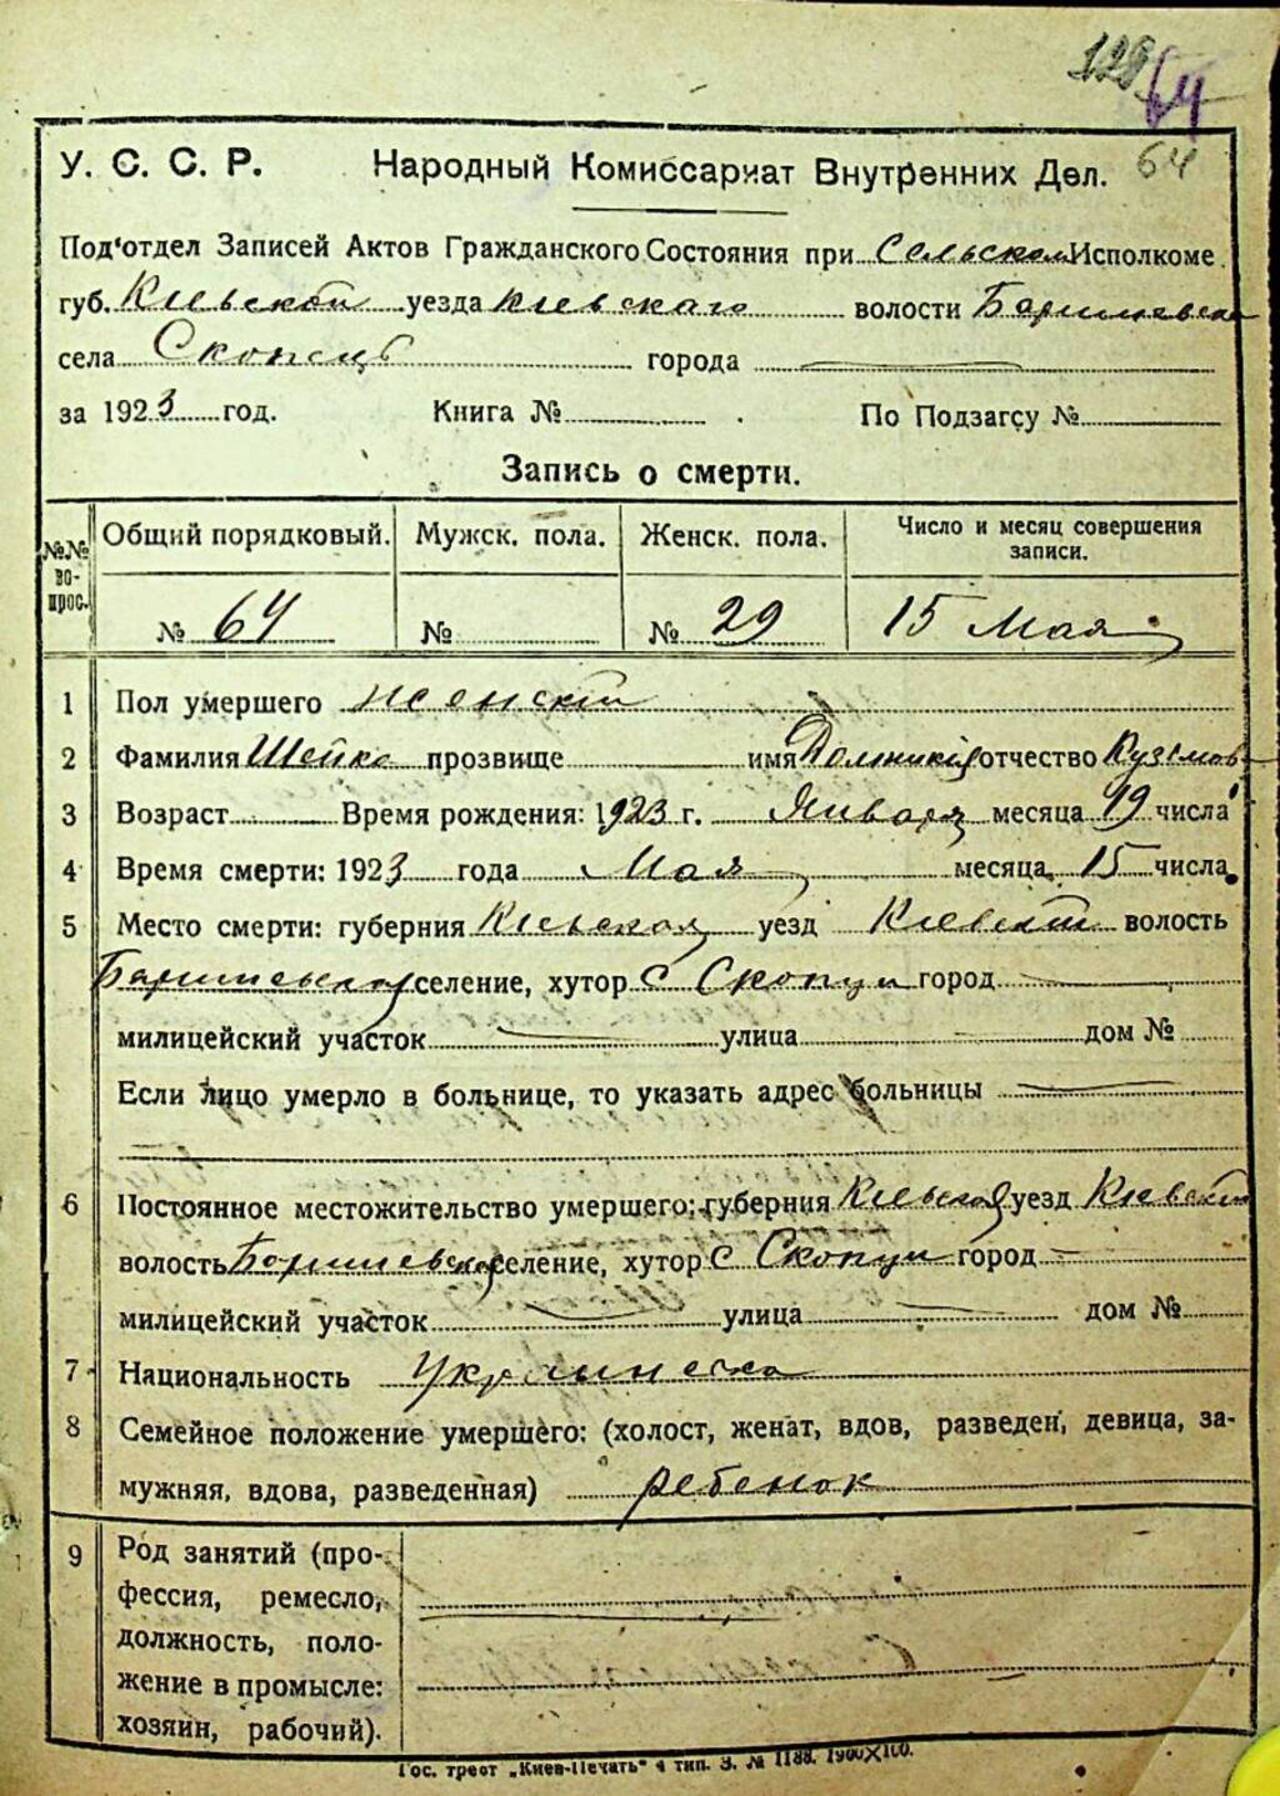 128 64
64
У. С. С. Р. Народный Комиссариат Внутренних Дел.
Под'отдел Записей Актов Гражданского Состояния при Сельском Исполкоме
губ. Кіевской уезда Кіевскаго волости Баришевской
села Скопцъ города
за 1923 год. Книга № По Подзагсу №
Запись о смерти.
№№ вопрос. Общий порядковый. Мужск. пола. Женск. пола. Число и месяц совершения записи.
№ 64 № № 29 15 Мая
1 Пол умершего женскій
2 Фамилия Шейко прозвище имя отчество Кузьмов
3 Возраст Время рождения: 1923 г. Января месяца 19 числа
4 Время смерти: 1923 года Мая месяца 15 числа
5 Место смерти: губерния Кіевская уезд Кіевскій волость
Баришевская селение, хутор С Скопци город
милицейский участок улица дом №
Если лицо умерло в больнице, то указать адрес больницы
6 Постоянное местожительство умершего: губерния Кіевская уезд Кіевскій
волость Баришевская селение, хутор С Скопци город
милицейский участок улица дом №
7 Национальность Украинска
8 Семейное положение умершего: (холост, женат, вдов, разведен, девица, за-
мужняя, вдова, разведенная) ребенок
9 Род занятий (про-
фессия, ремесло,
должность, поло-
жение в промысле:
хозяин, рабочий).
Гос. трест „Киев-Печать" 4 тип. З. № 1188. 1900X100.